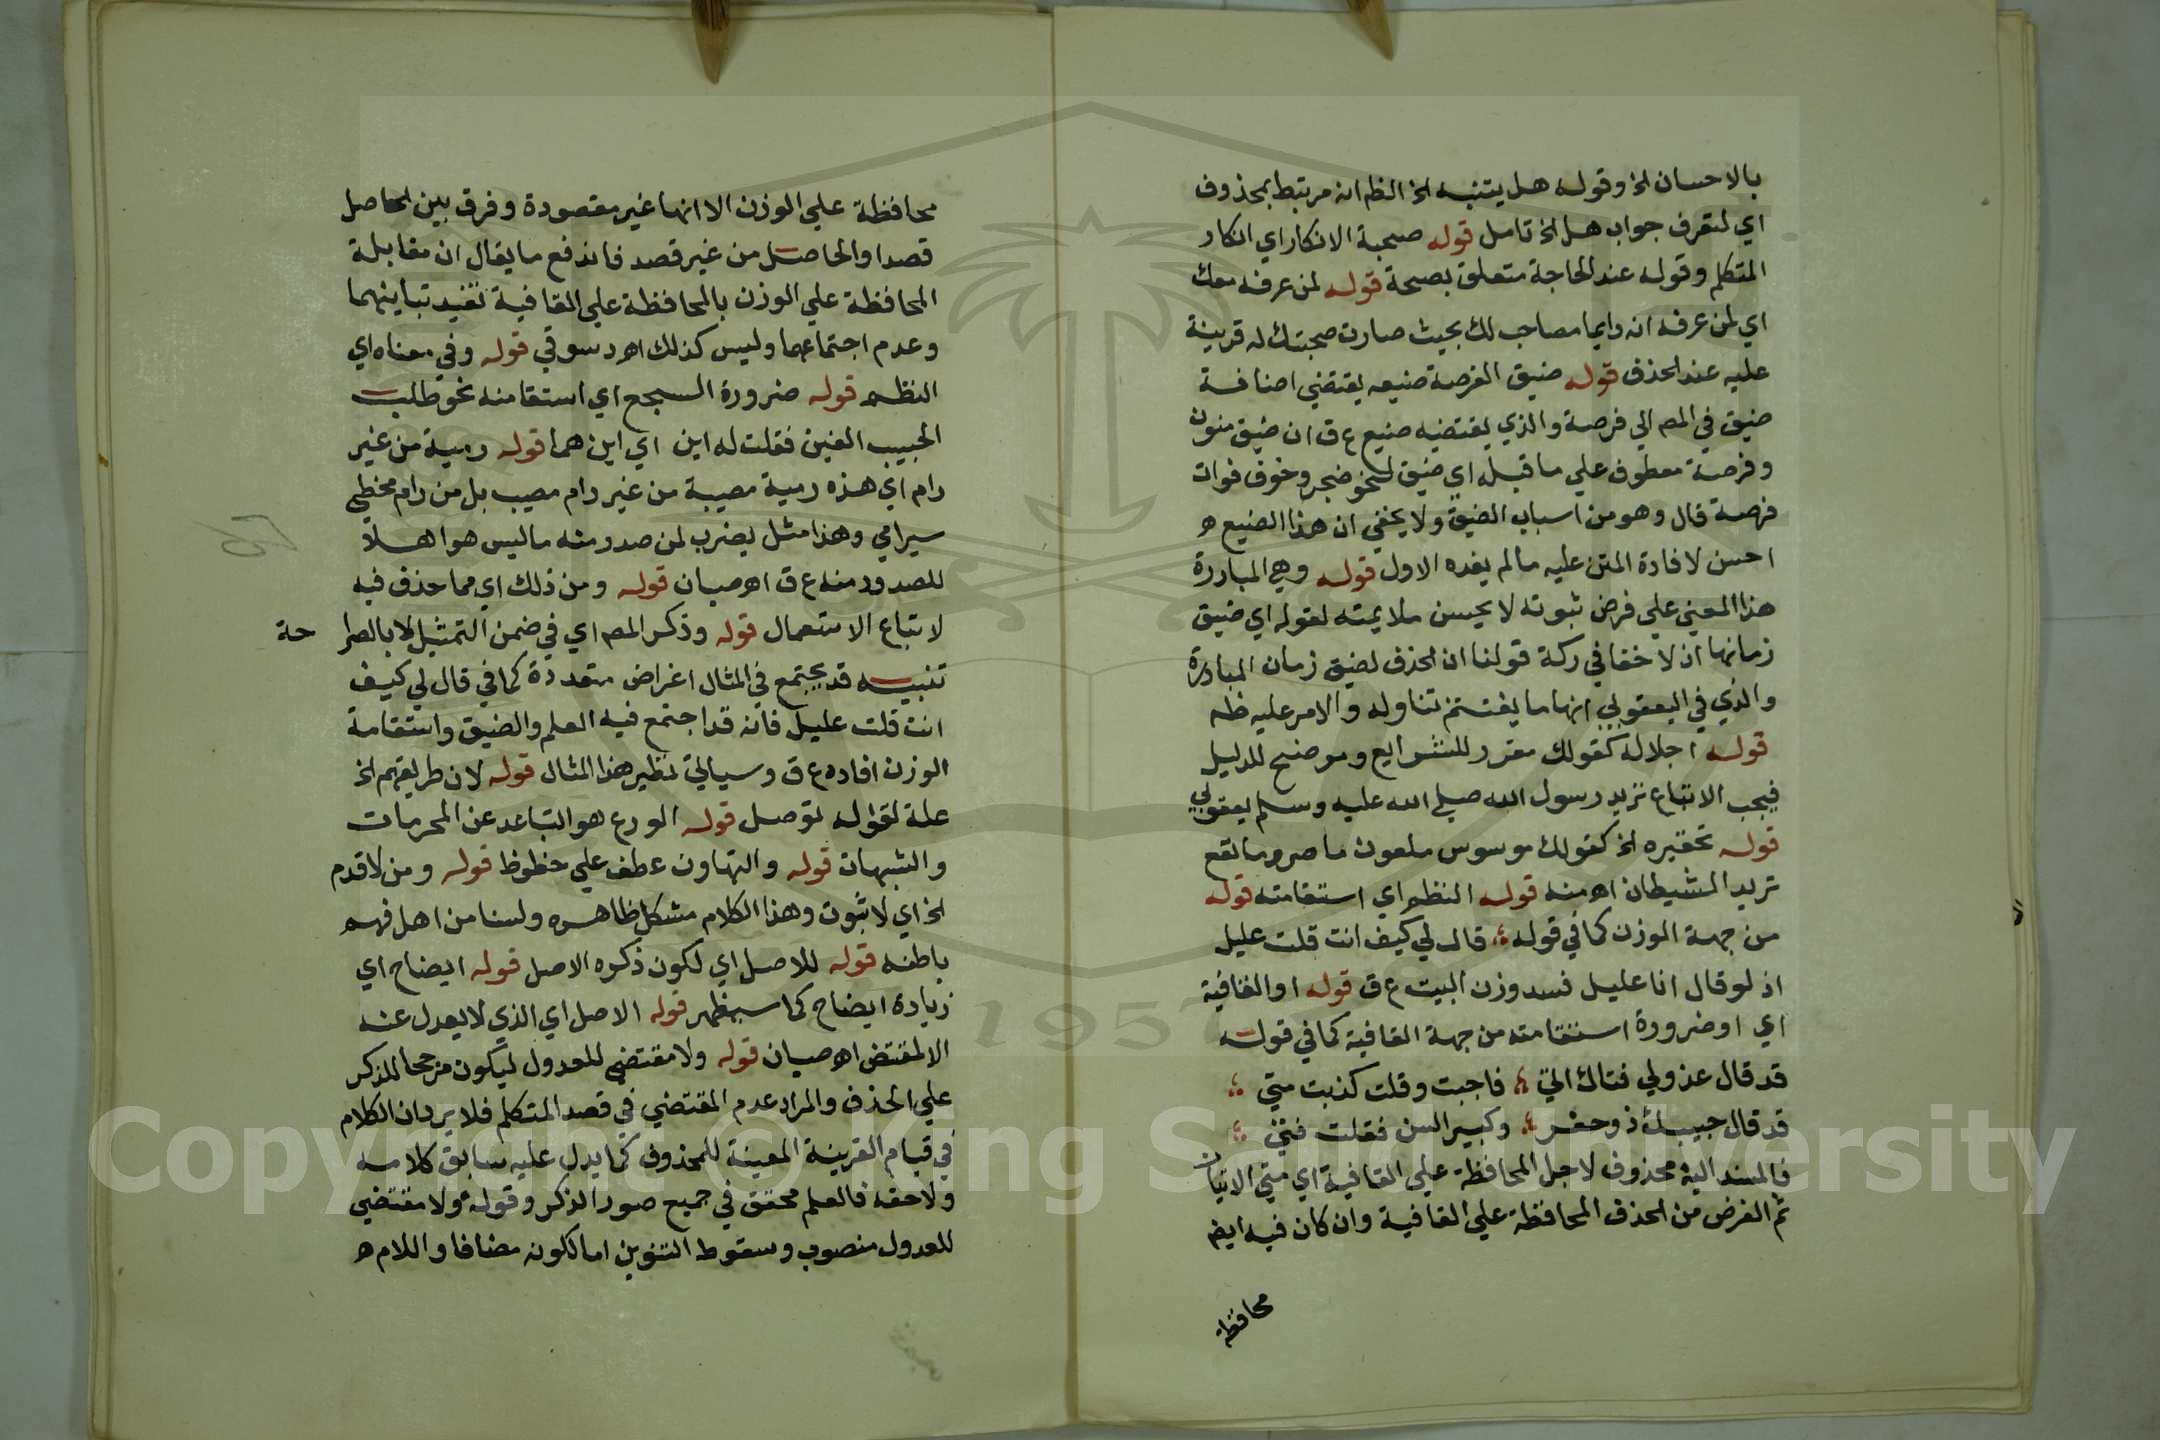 بالاحسان الخ وقوله هل يتنبه الخ الظم انه مرتبط بمحذوف
اي لتعرف جواب هل الخ تامل قوله صحبة الانكار اي انكار
المتكلم وقوله عند الحاجة متعلق بصحة قوله لمن عرفه معك
اي لمن عرفه انه دايما مصاحب لك بحيث صارت صحبتك له قرينة
عليه عند الحذف قوله ضيق الفرصة صنيعه يقتضي اضافة
ضيق في المص الي فرصة والذي يقتضيه صنيع ع ق ان ضيق منون
وفرصة معطوف علي ما قبله اي ضيق لنحو ضجر وخوف فوات
فرصة قال وهو من اسباب الضيق ولا يخفي ان هذا الصنيع ه
احسن لافادة المتن عليه ما لم يفده الاول قوله وهي المبادرة
هذا المعني علي فرض ثبوته لا يحسن ملايمته لقوله اي ضيق
زمانها اذ لا خفا في ركة قولنا ان الحذف لضيق زمان المبادرة
والذي في اليعقوبي انها ما يغتنم تناوله والامر عليه ظه
قوله اجلاله كقولك مقرر للشرايع وموضح للدليل
فيجب الاتباع تريد رسول الله صلي الله عليه وسلم يعقوبي
قوله تحقيره الخ كقولك موسوس ملعون ما صر وما نقع
تريد الشيطان اه منه قوله النظم اي استقامته قوله
من جهة الوزن كما في قوله قال لي كيف انت قلت عليل
اذ لو قال انا عليل فسد وزن البيت ع ق قوله او القافية
اي او ضرورة استقامته من جهة القافية كما في قوله
قد قال عذولي فتاك اتي فاجبت وقلت كذبت متي
قد قال حبيبك ذو خفر وكبير السن فقلت فتي
فالمسند اليه محذوف لاجل المحافظة علي القافية اي متي الاتيان
ثم الغرض من الحذف المحافظة علي القافية وان كان فيه ايض
محافظة
محافظة علي الوزن الا انها غير مقصودة وفرق بين الحاصل
قصدا والحاصل من غير قصد فاندفع ما يقال ان مقابلة
المحافظة علي الوزن بالمحافظة علي القافية تفيد تباينهما
وعدم اجتماعهما وليس كذلك اه دسوقي قوله وفي معناه اي
النظم قوله ضرورة السجع اي استقامته نحو طلب
الحبيب العنين فقلت له اين اي اين هما قوله رمية من غير
رام اي هذه رمية مصيبة من غير رام مصيب بل من رام مخطي
سيرامي وهذا مثل يضرب لمن صدر منه ما ليس هو اهلا
للصدور منه ع ق اه صبان قوله ومن ذلك اي مما حذف فيه
لاتباع الاستعمال قوله وذكر المص اي في ضمن التمثيل لا بالصرا حة
تنبيه قد يجتمع في المثال اغراض متعددة كما في قال لي كيف
انت قلت عليل فانه قد اجتمع فيه العلم والضيق واستقامة
الوزن افاده ع ق وسيالي نظير هذا المثال قوله لان طريقهم الخ
علة لقوله توصل قوله الورع هو التباعد عن المحرمات
والشبهات قوله والتهاون عطف علي حظوظ قوله ومن لا قدم
الخ اي لا ثبوت وهذا الكلام مشكل ظاهره ولسنا من اهل فهم
باطنه قوله للاصل اي لكون ذكره الاصل قوله ايضاح اي
زيادة ايضاح كما سيظهر قوله الاصل اي الذي لا يعدل عنه
الا لمقتض اه صبان قوله ولا مقتضي للعدول ليكون مرجحا للذكر
علي الحذف والمراد عدم المقتضي في قصد المتكلم فلا يرد ان الكلام
في قيام القرينة المعينة للمحذوف كما يدل عليه سابق كلامه
ولاحقه فالعلم محقق في جميع صور الذكر وقوله ولا مقتضي
للعدول منصوب وسقوط التنوين اما لكونه مضافا واللام ه
Copyright © King Saud University
1957